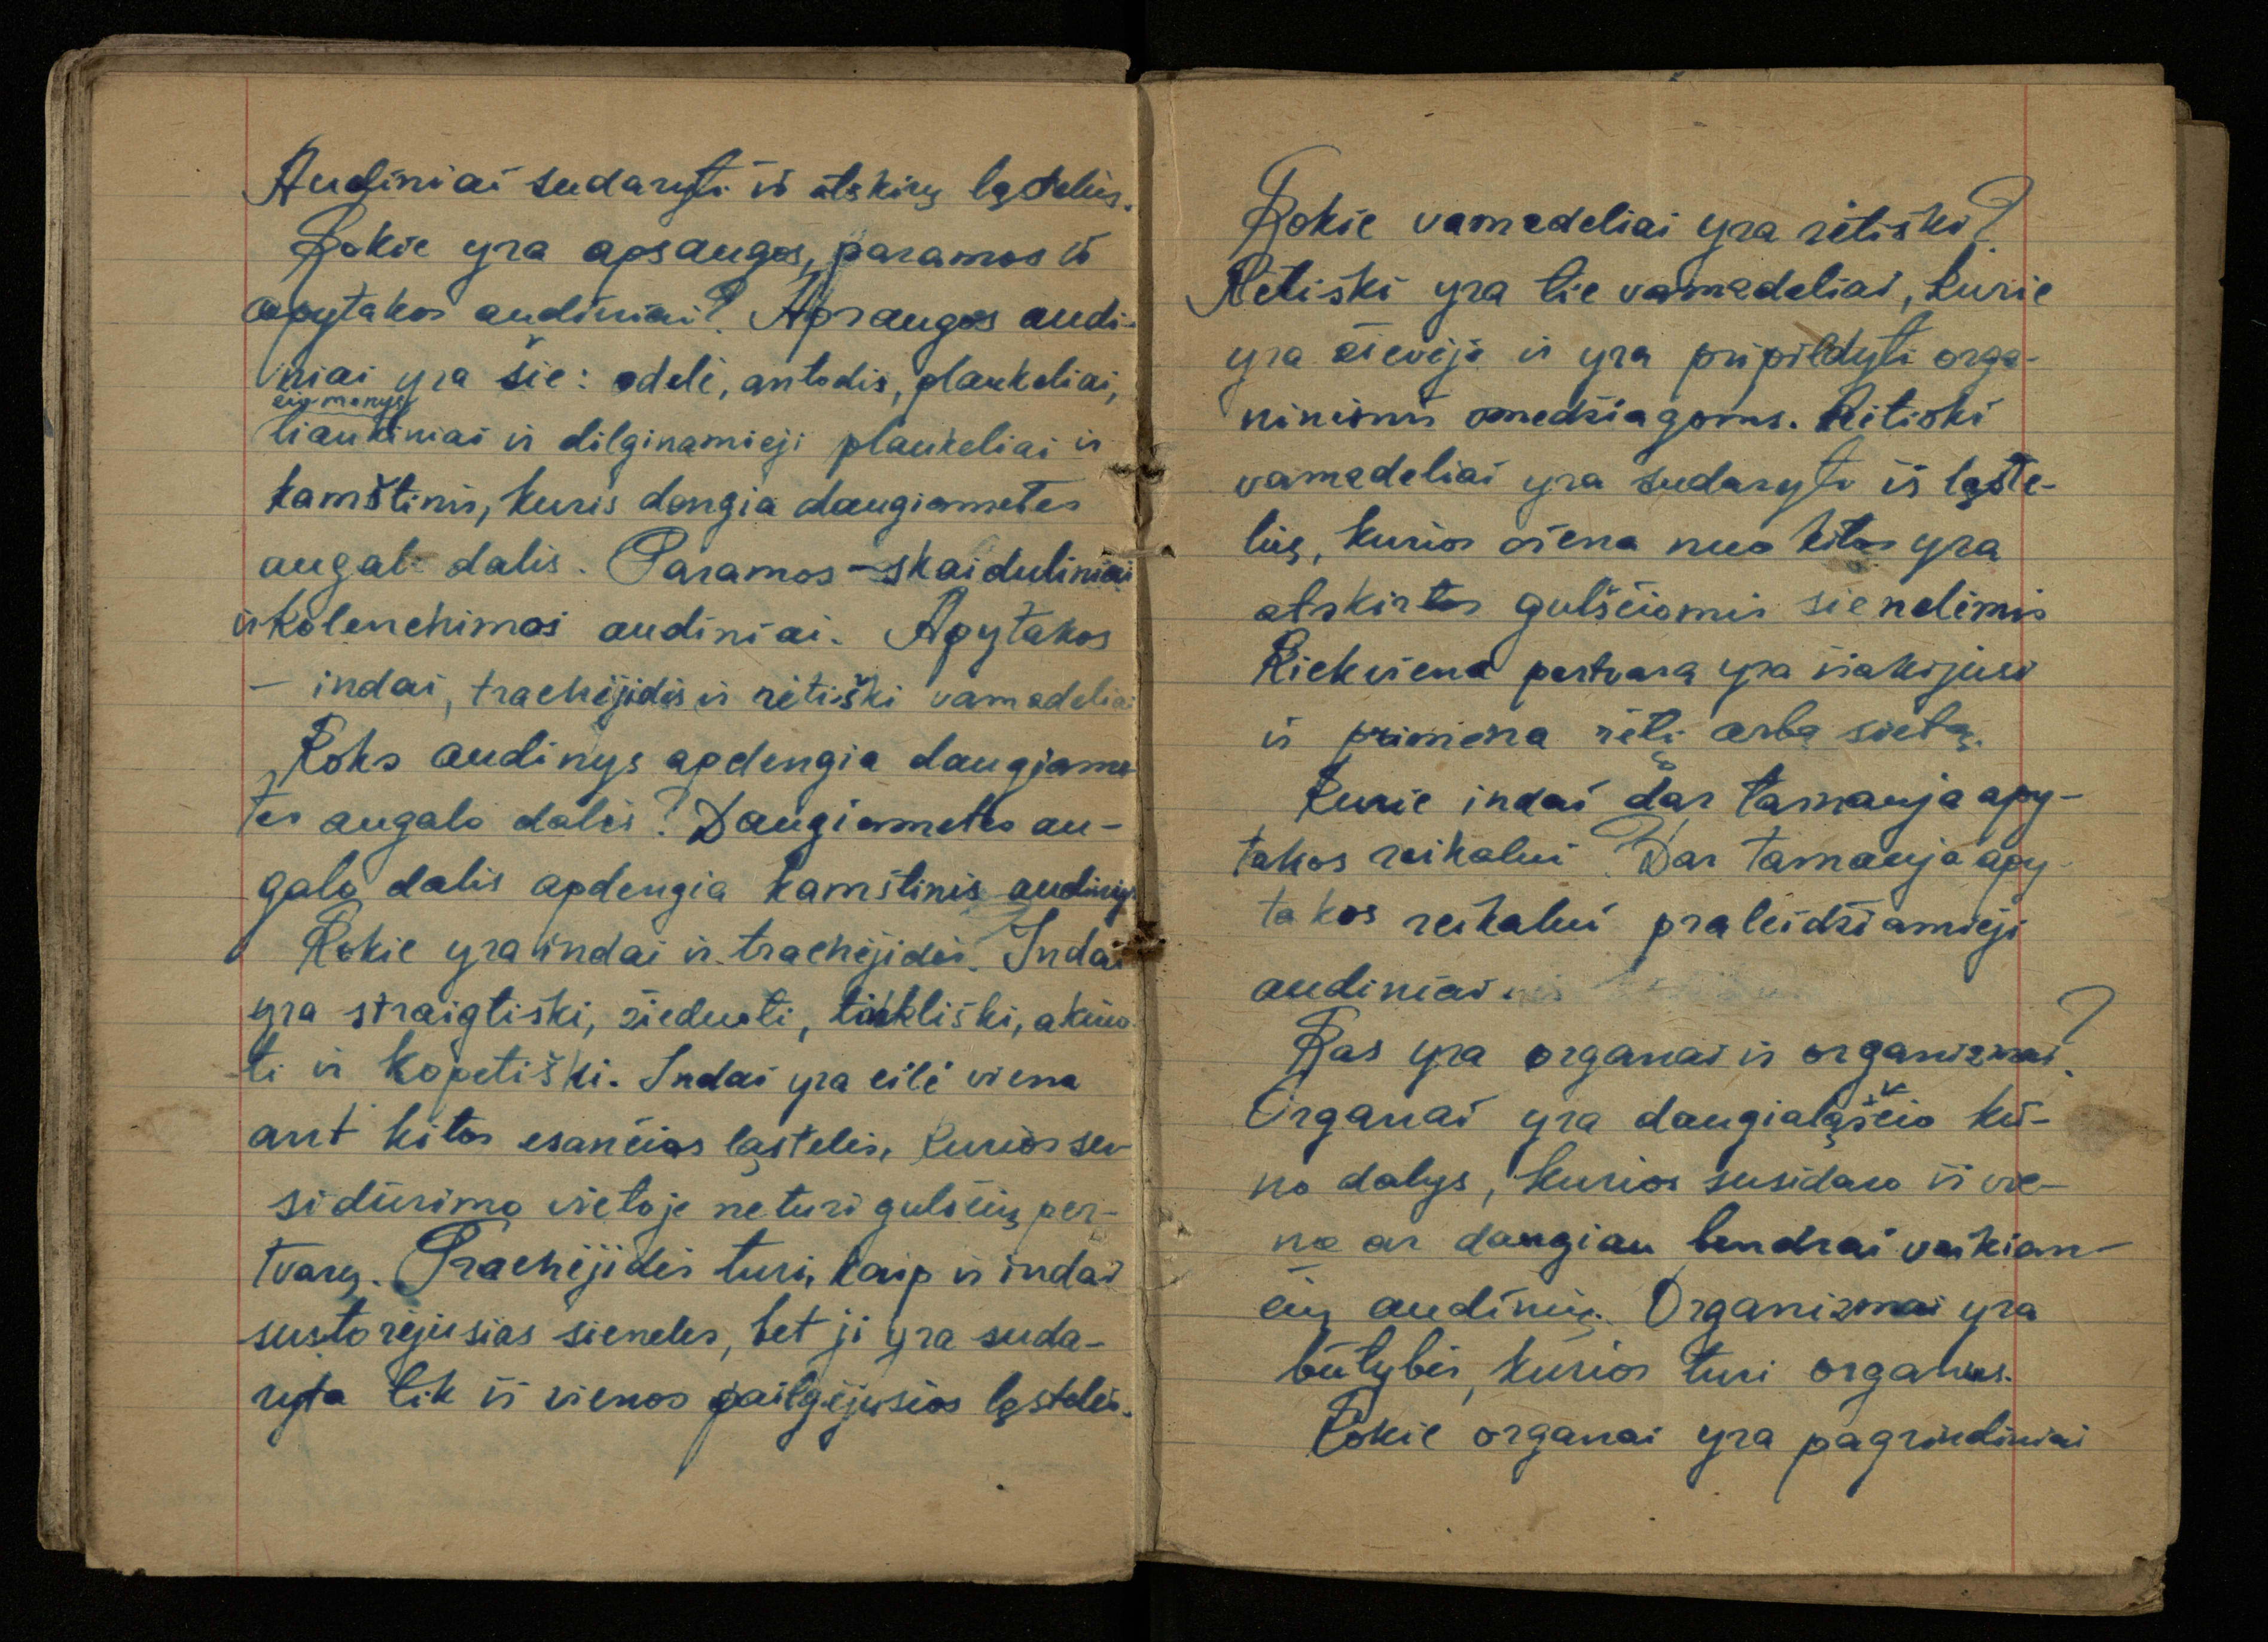 Audiniai sudaryti iš atskirų ląstelių.
Kokie yra apsaugos, paramos ir
apytakos audiniai? Apsaugos audi-
niai yra šie: odelė, antodis, plaukeliai,
liaukiniai ir dilginamieji plaukeliai ir
kamštinis, kuris dengia daugiametes
augalo dalis. Paramos - skaiduliniai
ir kolenchimos audiniai. Apytakos
- indai, trachėjidės ir rėtiški vamzdeliai
Koks audinys apdengia daugiame-
tes augalo dalis? Daugiametes au-
galo dalis apdengia kamštinis audinys
Kokie yra indai ir trachėjidės. Indai
yra straigtiški, žieduoti, tinkliški, akuo-
ti ir kopetiški. Indai yra eilė viena
ant kitos esančios ląstelės, kurios su-
sidūrimo vietoje neturi gulsčių per-
tvarų. Trachėjidės turi, kaip ir indai
sustorėjusias sieneles, bet ji yra suda-
ryta tik iš vienos pailgėjusios ląstelės.
Kokie vamzdeliai yra rėtiški?
Rėtiški yra tie vamzdeliai, kurie
yra žievėje ir yra pripildyti orga-
ninėmis medžiagoms. Rėtiški
vamzdeliai yra sudaryti iš ląste-
lių, kurios viena nuo kitos yra
atskirtos gulščiomis sienelėmis
Kiekviena pertvara yra išakijusi
ir primena rėtį arba sietą.
Kurie indai dar tarnauja apy-
takos reikalui? Dar tarnauja apy-
takos reikalui praleidžiamieji
audiniai
Kas yra organai ir organizmai?
Organai yra daugialąščio kū-
no dalys, kurios susidaro iš vie-
no ar daugiau bendrai veikian-
čių audinių. Organizmai yra
būtybės, kurios turi organus.
Kokie organai yra pagrindiniai